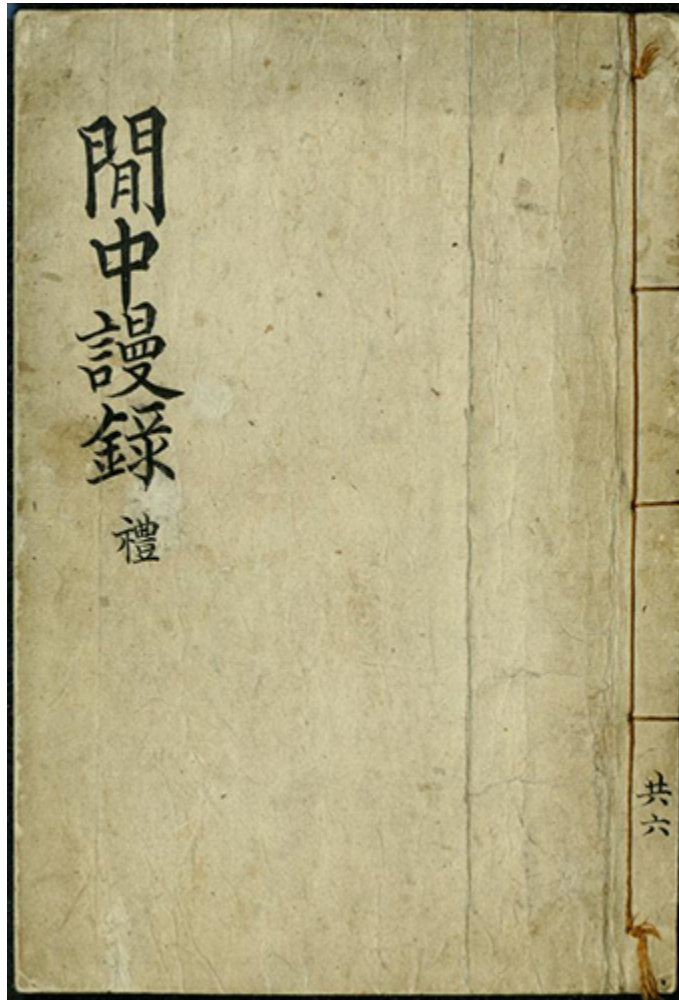 閒中謾錄 禮
共六